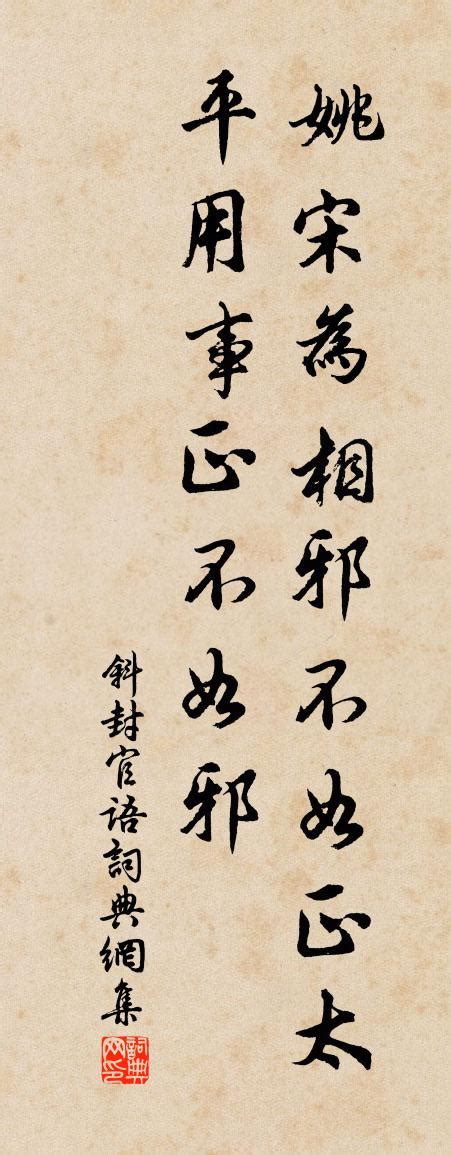 姚宋為相邪不如正太
平用事正不如邪
斜封官语詞典網集
詞典网印